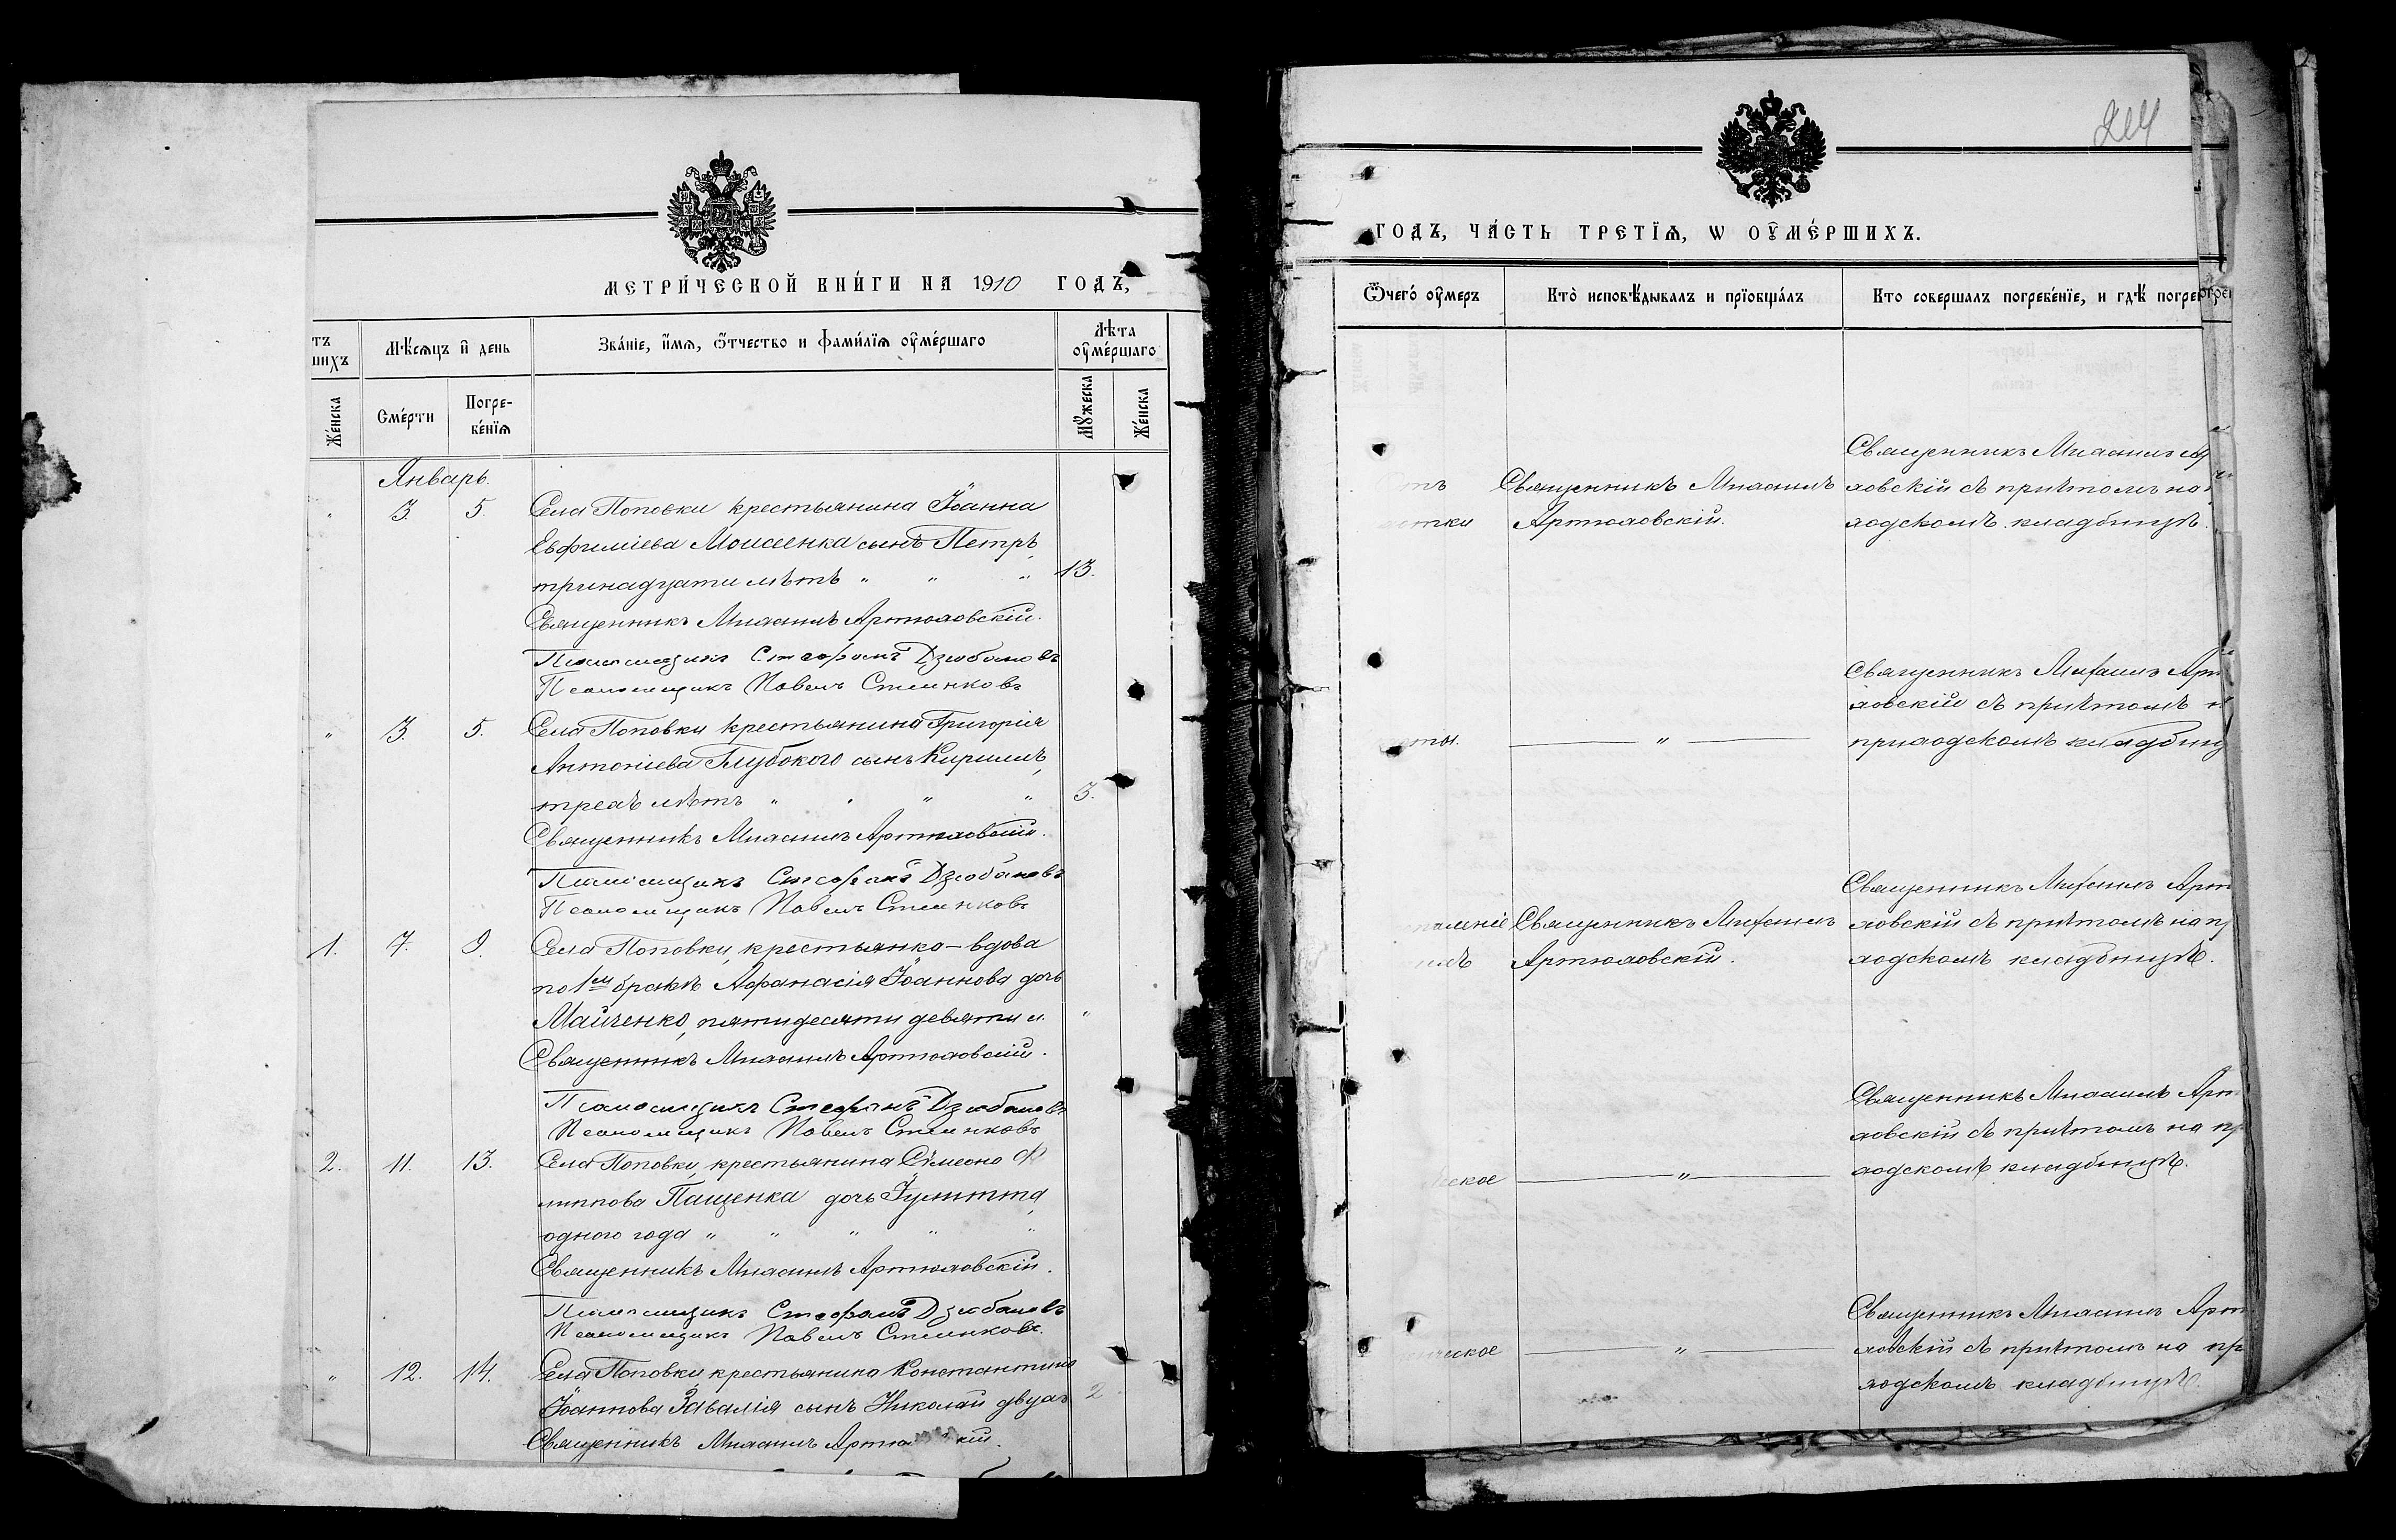 МЕТРИ́ЧЕСКОЙ КНИ́ГИ НА 1910 ГОДЪ,
тъ
шихъ
Мѣ́сяцъ и҆ день
Зва́нїе, и҆́мѧ, ѻ҆́тчество и фами́лїѧ оу҆ме́ршагѡ
Лѣта
оу҆ме́ршаго
Же́нска
Сме́рти
Погре-
бе́нїѧ
Мꙋ́жеска
Же́нска
Январь.
3. 5. Села Поповки крестьянина Іоанна
Евфиміева Моисеенка сынъ Петръ,
тринадцати лѣтъ " " " 13.
Священникъ Михаилъ Артюховскій.
Псаломщикъ Стефанъ Дзюбановъ
Псаломщикъ Павелъ
" 3. 5. Села Поповки крестьянина Григорія
Антоніева Глубокого сынъ Кириллъ,
трехъ лѣтъ " " " " 3.
Священникъ Михаилъ Артюховскій.
Псаломщикъ Стефанъ Дзюбановъ
Псаломщикъ Павелъ
1. 7. 9. Села Поповки, крестьянка - вдова
по 1му бракѣ Афанасія Іоаннова дочь
Майченко, пятидесяти девяти л. "
Священникъ Михаилъ Артюховскій.
Псаломщикъ Стефанъ Дзюбановъ
Псаломщикъ Павелъ
2. 11. 13. Села Поповки, крестьянина Сѵмеона Фи
липпова Пащенка дочь Іулитта,
одного года " " " " "
Священникъ Михаилъ Артюховскій.
Псаломщикъ Стефанъ Дзюбановъ
Псаломщикъ Павелъ
" 12. 14. Села Поповки крестьянина Константина
Іоаннова Завалія сынъ Николай двухъ 2
Священникъ Михаилъ Артю кій.
ГОДЪ, ЧА́СТЬ ТРЕ́ТЇѦ, Ѡ ОУ҆МЕ́РШИХЪ.
Ѿчегѡ́ оу҆меръ
Кто̀ исповѣ́дывалъ и прїобща́лъ
Кто соверша́лъ погребе́нїе, и гдѣ́ погре
Священникъ Михаилъ
Артюховскій.
Священникъ Михаилъ
ховскій съ причтомъ на
ходскомъ кладбищѣ.
"
Священникъ Михаилъ Арт
ховскій съ причтомъ н
приходскомъ кладбищ
Священникъ Михаилъ
Артюховскій.
Священникъ Михаилъ Арт
ховскій съ причтомъ на пр
ходскомъ кладбищѣ.
"
Священникъ Михаилъ Арт
ховскій съ причтомъ на пр
ходскомъ кладбищѣ.
"
Священникъ Михаилъ Арт
ховскій съ причтомъ на пр
ходскомъ кладбищѣ.